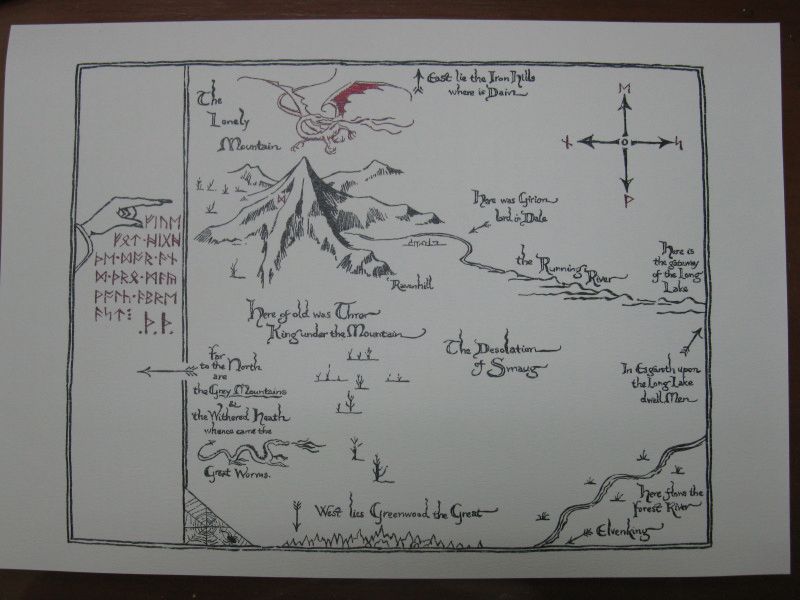 The
Lonely
Mountain
East lie the Iron Hills
where is Dain
ᛖ
ᚾ
ᛋ
ᚹ
ᛞ
Here was Girion
lord in Dale
ᚠᛁᚢᛖ
ᚠᚩᛏ·ᚻᛁᚷᚻ
ᚦᛖ·ᛞᚩᚱ·ᚫᚾ
ᛞ·ᚦᚱᛟ·ᛗᚫᚣ
ᚹᚪᛚᚳ·ᚪᛒᚱᛖ
ᚪᛋᛏ⁝
.ᚦ.ᚦ.
the Running
River
Here is
the gateway
of the Long
Lake
Ravenhill
Here of old was Thror
King under the Mountain
The Desolation
of Smaug
Far
to the North
are
the Grey Mountains
&
the Withered Heath
whence came the
Great Worms.
In Esgaroth upon
the Long Lake
dwell Men
Here flows the
Forest River
West lies Greenwood the Great
Elvenking